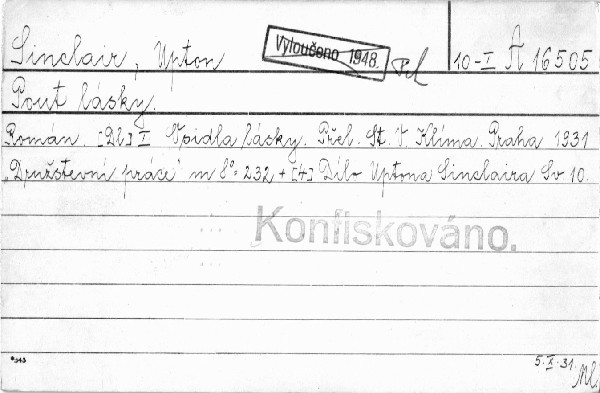 Sinclair, Upton
Vyloučeno 1948.
10-I A 16505
Pout lásky.
Román. [Díl] I Osidla lásky. Přel. St. V. Klíma. Praha 1931
„Družstevní práce" m 8° 232 + [4] Dílo Uptona Sinclaira Sv 10.
Konfiskováno.
*343
5.X.31.